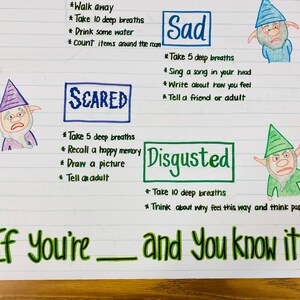 * Walk away
* Take 10 deep breaths
* Drink some water
* Count items around the room
Sad
* Take 5 deep breaths
* Sing a song in your head
* Write about how you feel
* Tell a friend or adult
SCARED
* Take 5 deep breaths
* Recall a happy memory
* Draw a picture
* Tell an adult
Disgusted
* Take 10 deep breaths
* Think about why feel this way and think
If You're ___ and You know it